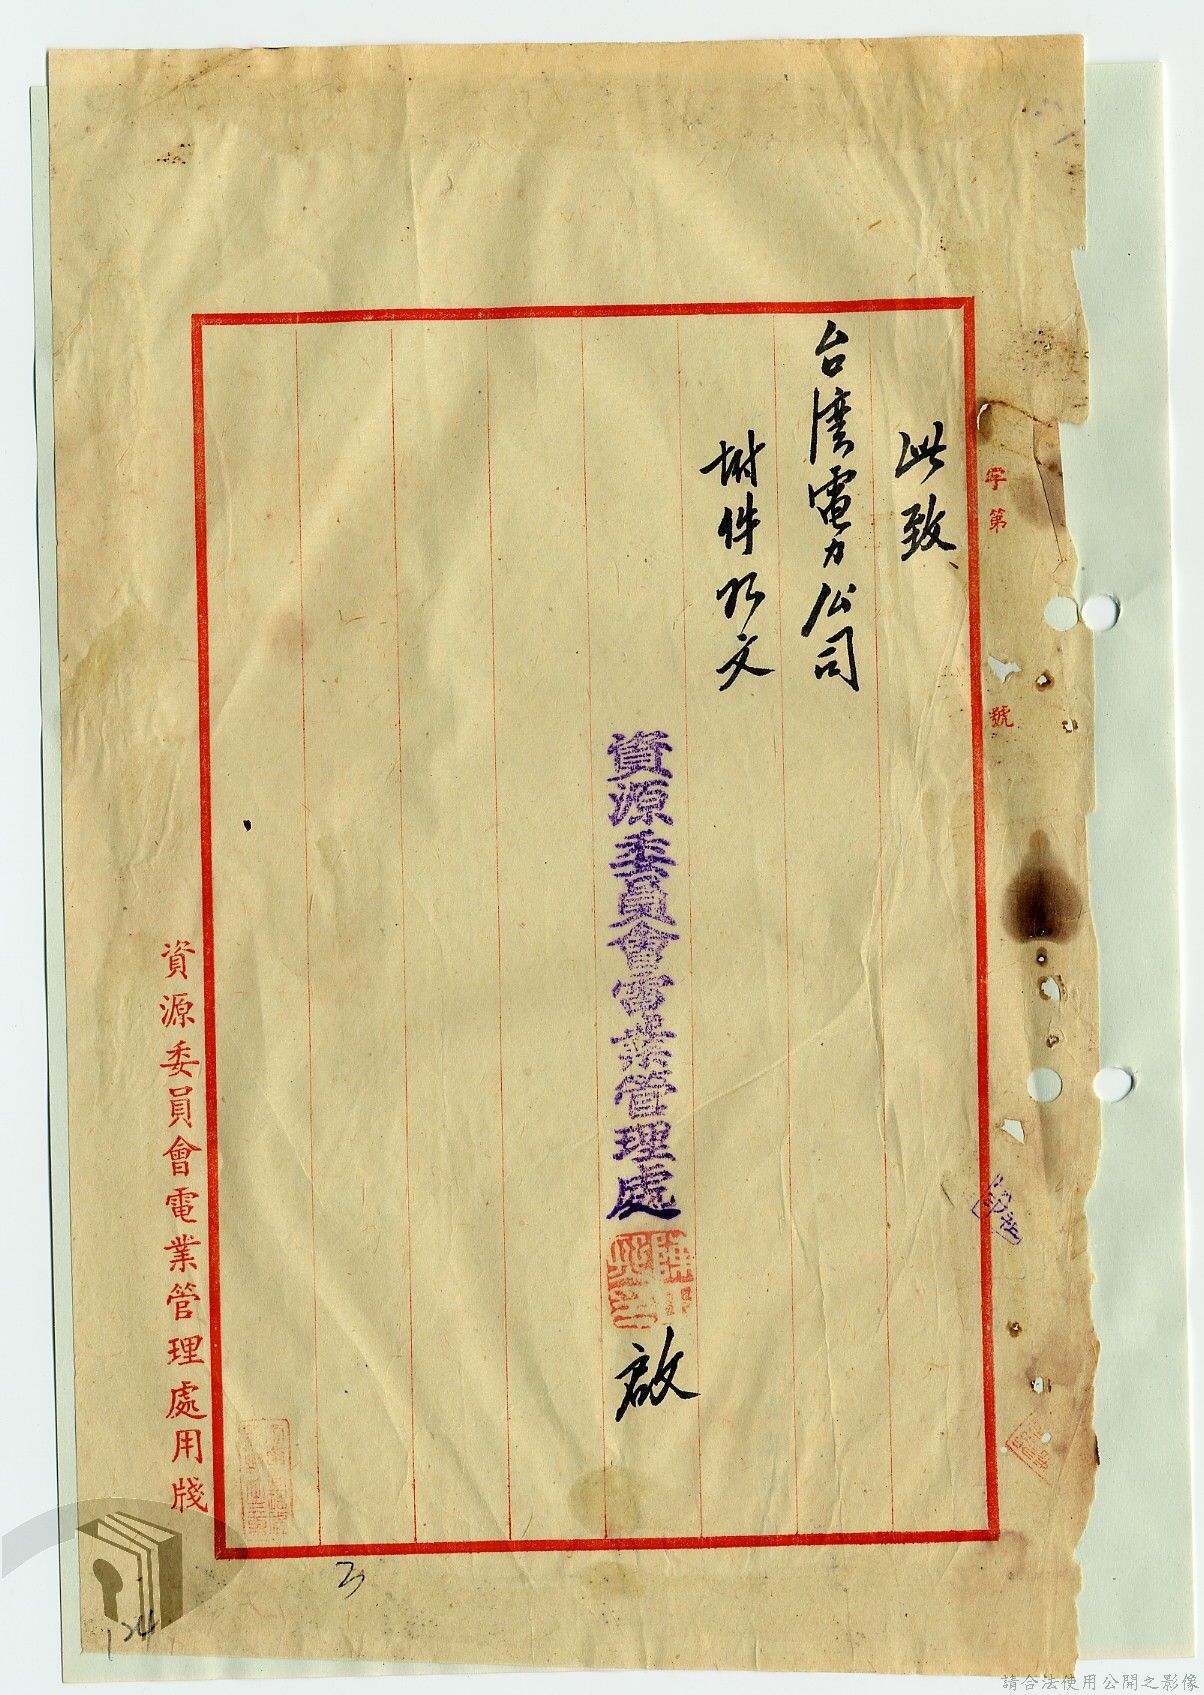 字第 號
此致
台灣電力公司
附件如文
資源委員會電業管理處 啟
資源委員會電業管理處用牋
3
124
請合法使用公開之影像